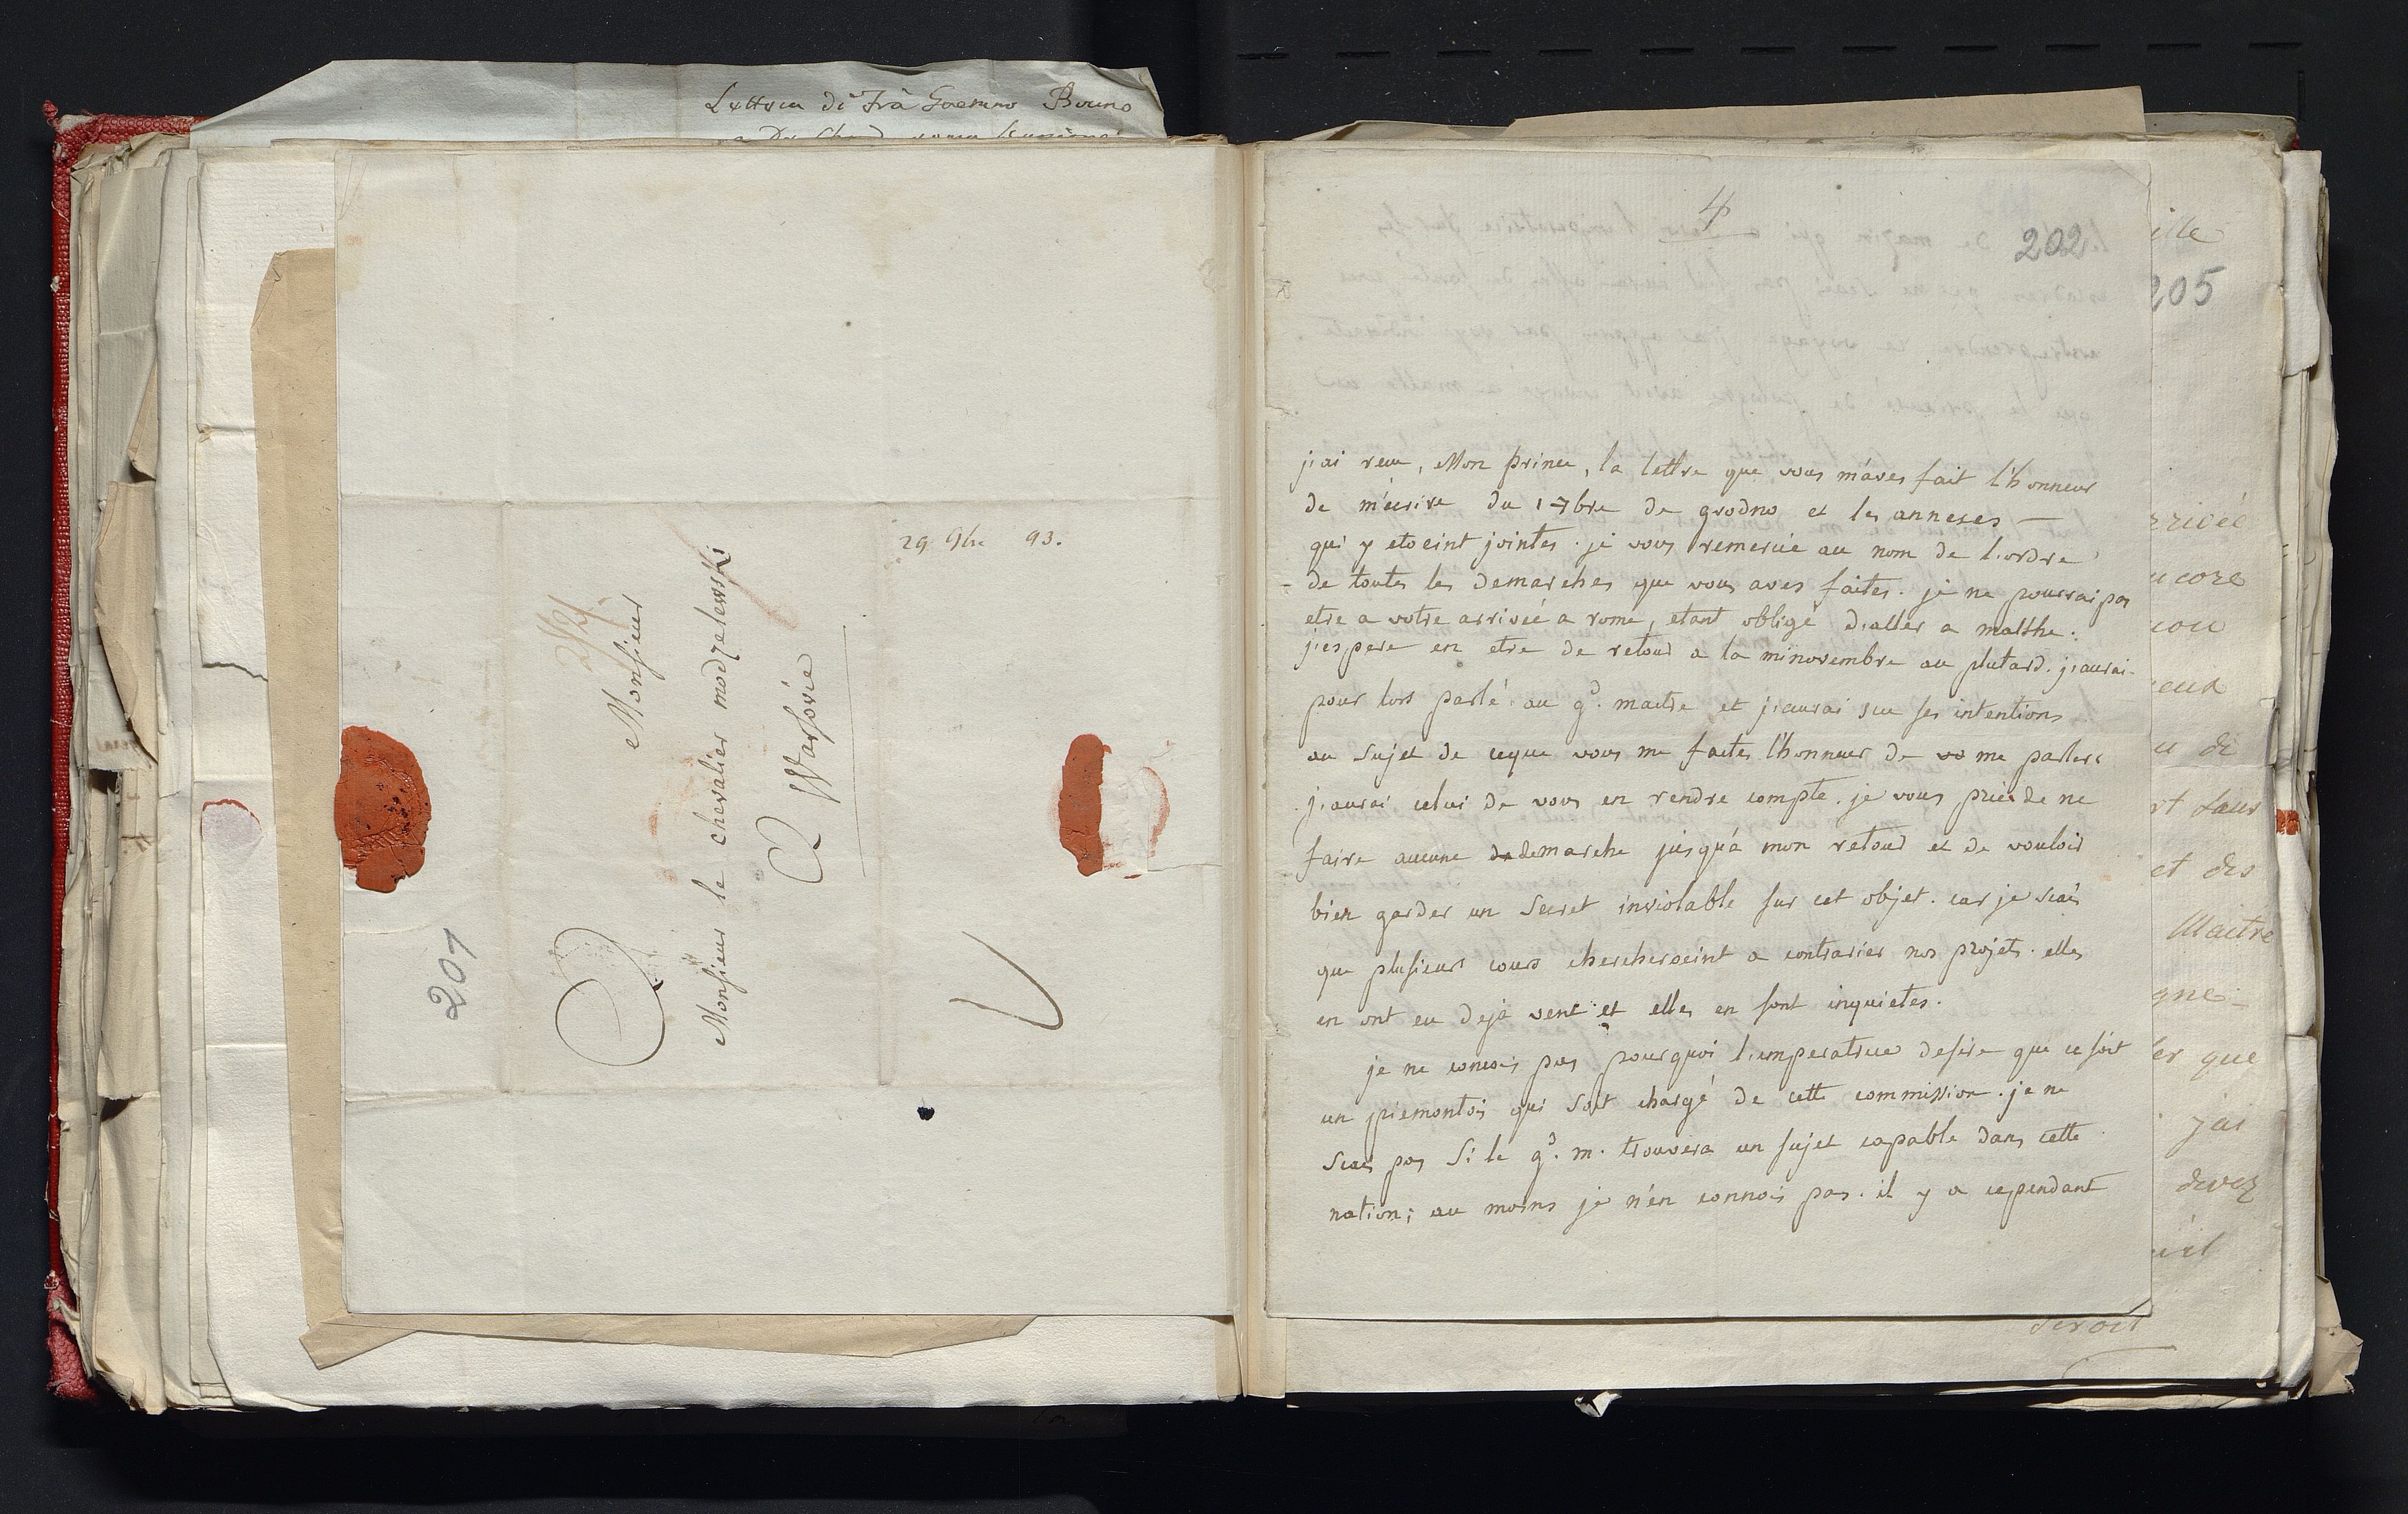 Lettera di Frà Gaetano Bruno
29 9bre 93.
Monsieur
Monsieur le chevalier modzelewski
a Warsovie
201
4
202
j'ai recu, Mon prince, la lettre que vous m'aves fait l'honneur
de m'ecrire du 1 7bre de grodno et les annexes —
qui y etoeint jointes. je vous remercie au nom de l'ordre
de toutes les demarches que vous aves faites. je ne pourrai pas
etre a votre arriveé a rome, etant obligé d'aller a malthe.
j'espere en etre de retour a la minovembre au plutard. j'aurai
pour lors parlé au gd. maitre et j'aurai scu ses intentions
au sujet de ceque vous me faites l'honneur de vo me parler
j'aurai celui de vous en rendre compte. je vous prie de ne
faire aucune de demarche jusqu'a mon retour et de vouloir
bien garder un secret inviolable sur cet objet. car je scais
que plusieurs cours chercheroeint a contrarier nos projets. elles
en ont eu dejà vent et elles en sont inquietes.
je ne concois pas pourquoi l'imperatrice desire que ce soit
un piemontois qui soit chargé de cette commission. je ne
scais pas si le gd. m. trouvera un sujet capable dans cette
nation; au moins je n'en connois pas. il y a cependant
ille
205
rrivéé
ncore
et des
Maitre
gne
er que
jai
devez
seroit